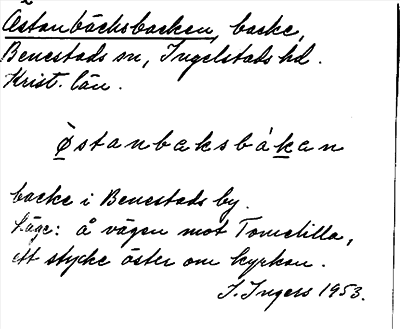 Östanbäcksbacken, backe,
Benestads sn, Ingelstads hd.
Krist. län.
Østanbaksbákan
backe i Benestads by.
Läge: å vägen mot Tomelilla,
ett stycke öster om kyrkan.
I. Ingers 1953.